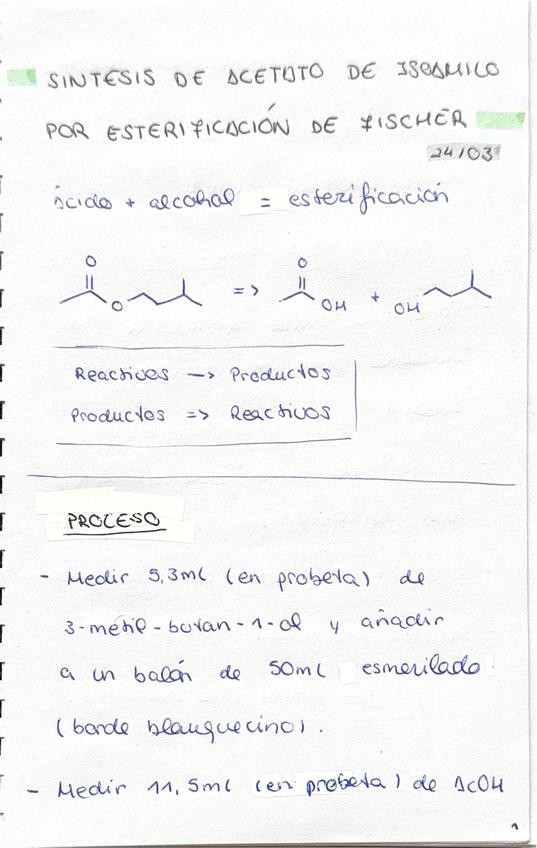 SINTESIS DE ACETATO DE ISOAMILO
POR ESTERIFICACIÓN DE FISCHER
24/03
ácido + alcohol = esterificación
O O
O => OH + OH
Reactivos —> Productos
Productos => Reactivos
PROCESO
- Medir 5,3ml (en probeta) de
3-metil-butan-1-ol y añadir
a un balón de 50ml esmerilado
(borde blanquecino).
- Medir 11,5ml (en probeta) de AcOH
1